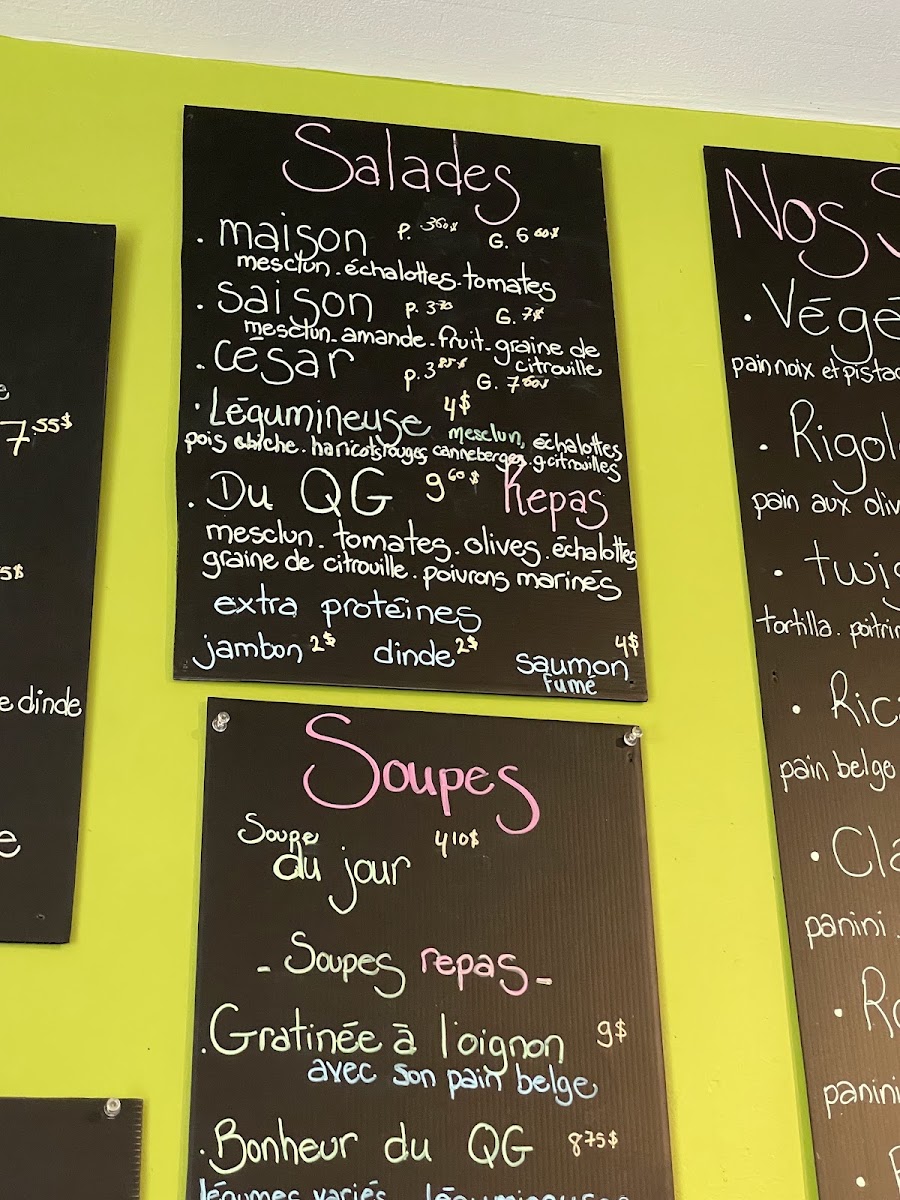 7.55$
5$
e dinde
e
Salades
. maison P. 3 60$ G. 6 60$
mesclun. échalottes. tomates
. saison P. 3 70 G. 7$
mesclun. amande. fruit. graine de
citrouille
. césar P. 3 85$ G. 7
. Légumineuse 4$ mesclun, échalottes
pois chiche. haricots rouges, canneberges. g. citrouilles
. Du QG 9 60$ Repas
mesclun. tomates. olives. échalottes
graine de citrouille. poivrons marinés
extra protéines
jambon 2$ dinde 2$ saumon 4$
fumé
Soupes
Soupe 4 10$
du jour
- Soupes repas -
. Gratinée à l'oignon 9$
avec son pain belge
. Bonheur du QG 8 75$
légumes variés légumineuses
Nos S
. Végé
pain noix et pistac
. Rigol
pain aux oliv
. twig
tortilla. poitrin
. Ric
pain belge
. Cla
panini .
. Ro
panini